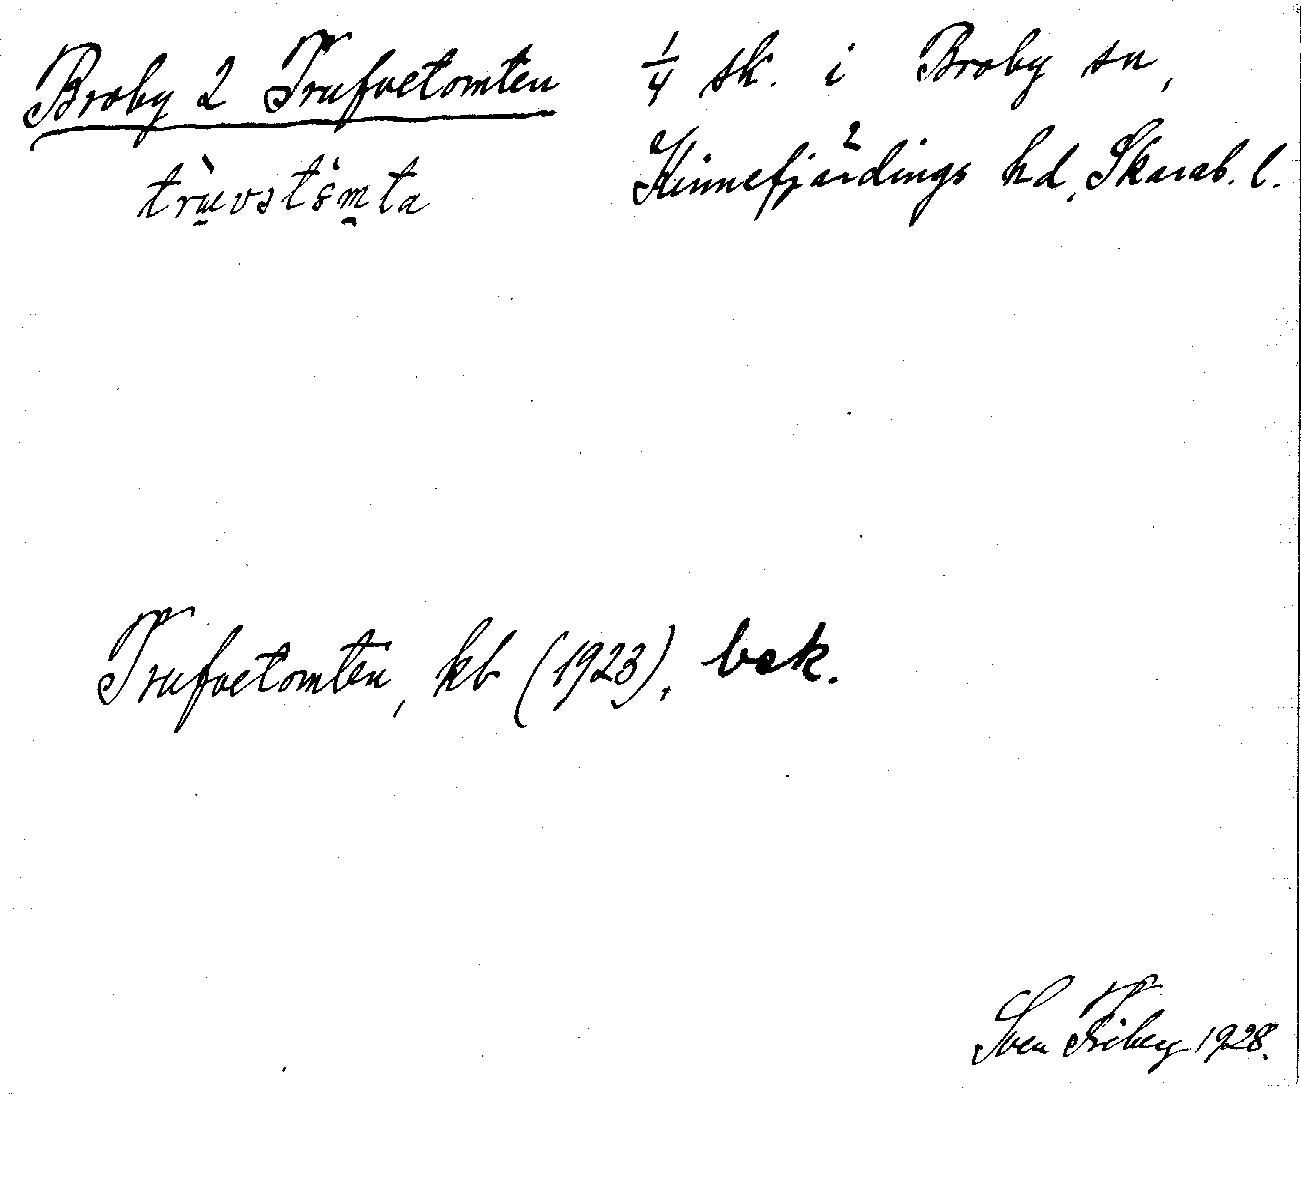 Broby 2 Trufvetomten 1/4 sk. i Broby sn,
Kinnefjärdings hd, Skarab. l.
Trufvetomten, kb (1923), bek.
Sven Friberg 1928.